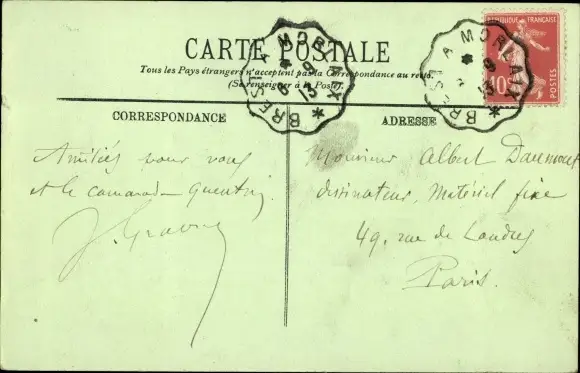 CARTE POSTALE
Tous les Pays étrangers n'acceptent pas la Correspondance au recto.
(Se renseigner à la Poste).
BREST A MORLAIX
8 9
13
BREST A MORLAIX
9
13
REPUBLIQUE FRANÇAISE
10
POSTES
CORRESPONDANCE
Amitiés pour vous
et le camarade Quentin.
ADRESSE
Monsieur Albert Daumont
dessinateur, Matériel fixe
49, rue de Londres
Paris.